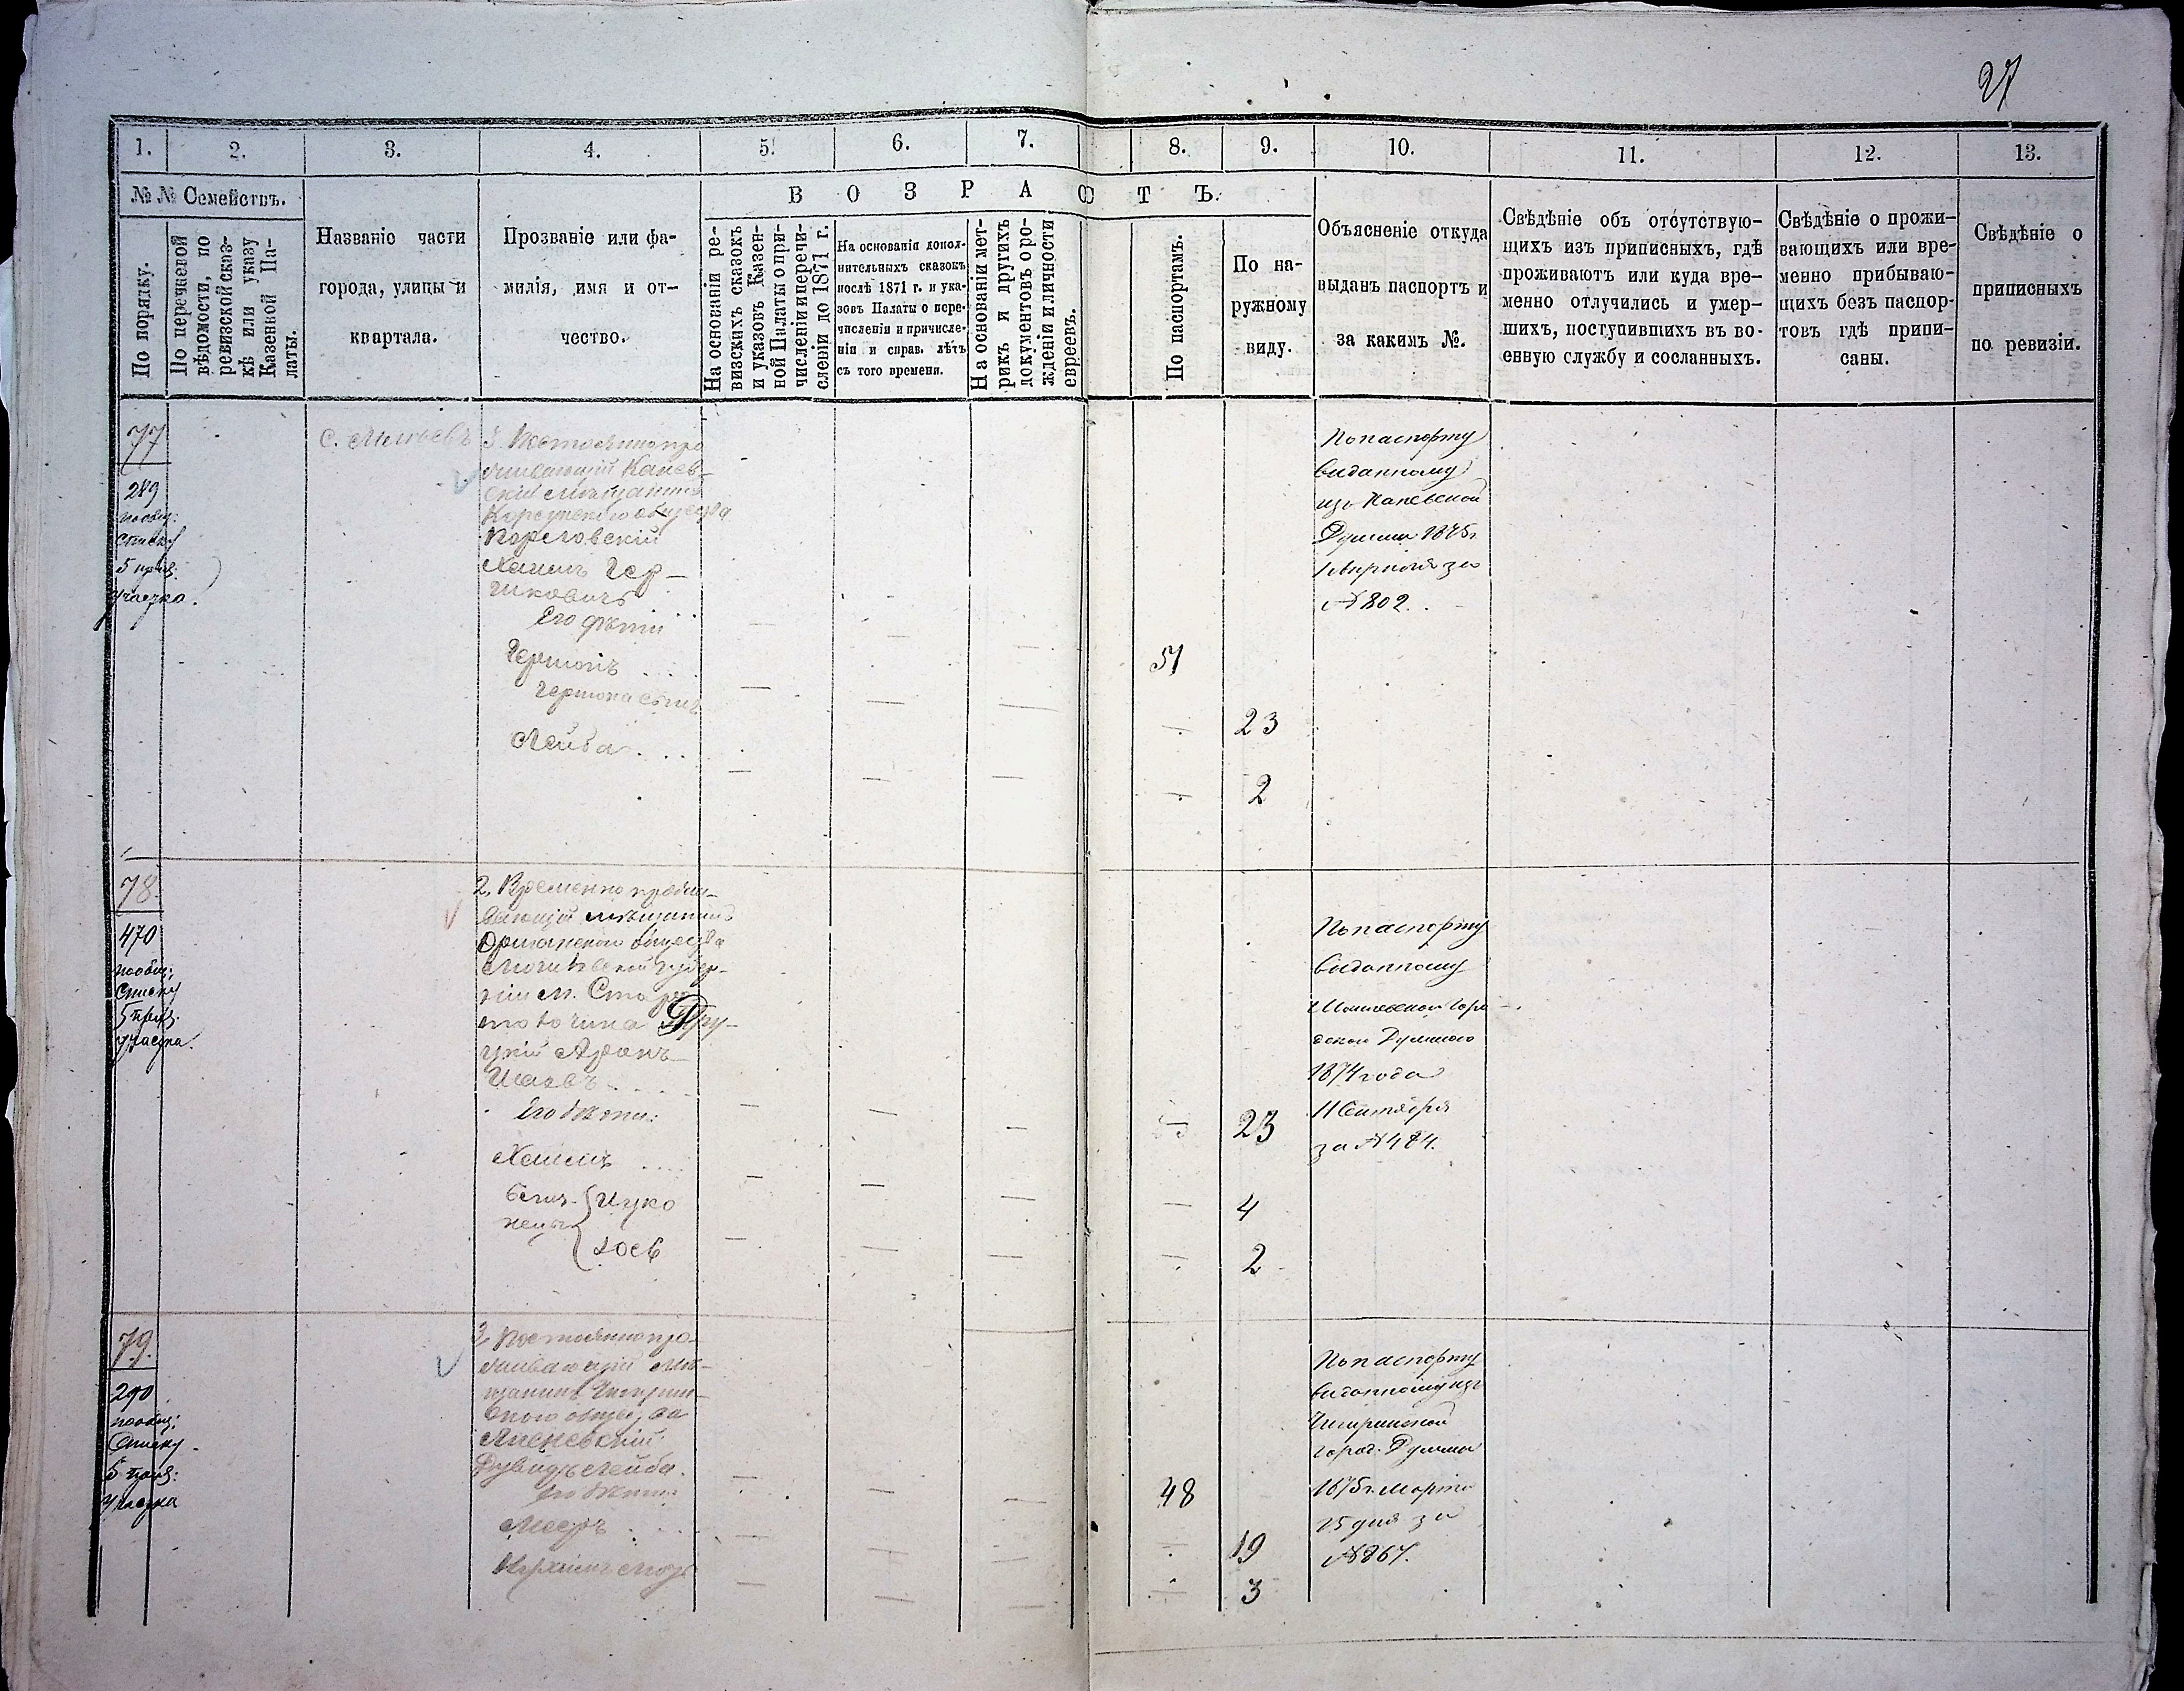 27
1. 2. 3. 4. 5. 6. 7. 8. 9. 10. 11. 12. 13.
№№ Семействъ.
В О З Р А С Т Ъ.
По порядку.
По перечневой
вѣдомости, по
ревизской сказ-
кѣ или указу
Казенной Па-
латы.
Названіе части
города, улицы и
квартала.
Прозваніе или фа-
милія, имя и от-
чество.
На основаніи ре-
визскихъ сказокъ
и указовъ Казен-
ной Палаты о при-
численіи и перечи-
сленіи до 1871 г.
На основаніи допол-
нительныхъ сказокъ
послѣ 1871 г. и ука-
зовъ Палаты о пере-
численіи и причисле-
ніи и справ. лѣтъ
съ того времени.
На основаніи мет-
рикъ и другихъ
документовъ о ро-
жденіи и личности
евреевъ.
По паспортамъ.
По на-
ружному
виду.
Объясненіе откуда
выданъ паспортъ и
за какимъ №.
Свѣдѣніе объ отсутствую-
щихъ изъ приписныхъ, гдѣ
проживаютъ или куда вре-
менно отлучились и умер-
шихъ, поступившихъ въ во-
енную службу и сосланныхъ.
Свѣдѣніе о прожи-
вающихъ или вре-
менно прибываю-
щихъ безъ паспор-
товъ гдѣ припи-
саны.
Свѣдѣніе о
приписныхъ
по ревизіи.
77
289
по общ:
списку
5 приз.
участка.
С.
Постоянно про
живающій Канев-
скій мѣщанинъ
Корсунскаго общества
Хаимъ Гер-
шковичъ
Его дѣти
Гершонъ
Гершона сынъ
Лейба
51
23
2
По паспорту
выданному
изъ Каневской
Думы 1875г
за
№ 802.
78.
470
по общ:
Списку
5 приз.
участка.
2, Временно прожи-
вающій мѣщанинъ
Оршанскаго общества
Могилевской губер-
ніи м. Старо
Дру-
цкій Аронъ
Его дѣти:
Хаимъ
Близ- Ицко
нецы
Іосъ
23
4
2
По паспорту
выданному
1874 года
11 Сентября
за № 484.
79.
290
по общ:
Списку
5 приз:
участка
3, Постоянно про-
живающій мѣ-
щанинъ Чигирин-
скаго общества
Дувидъ Лейба.
Его дѣти:
48
19
3
По паспорту
выданному изъ
Чигиринской
город: Думы
1875г. Марта
25 дня за
№ 867.